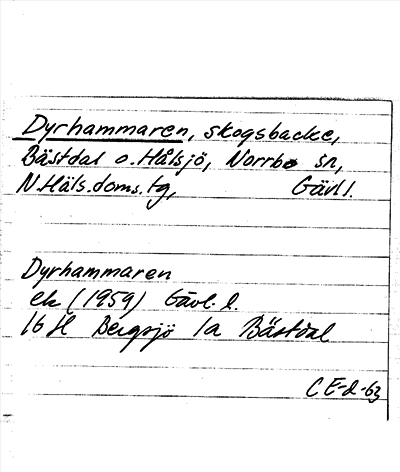 Dyrhammaren, skogsbacke,
Bästdal o. Hålsjö, Norrbo sn,
N.Häls.doms.tg, Gävl.
Dyrhammaren
ek (1959) Gävl. l.
16 H Bergsjö 1a Bästdal
C E-d-63